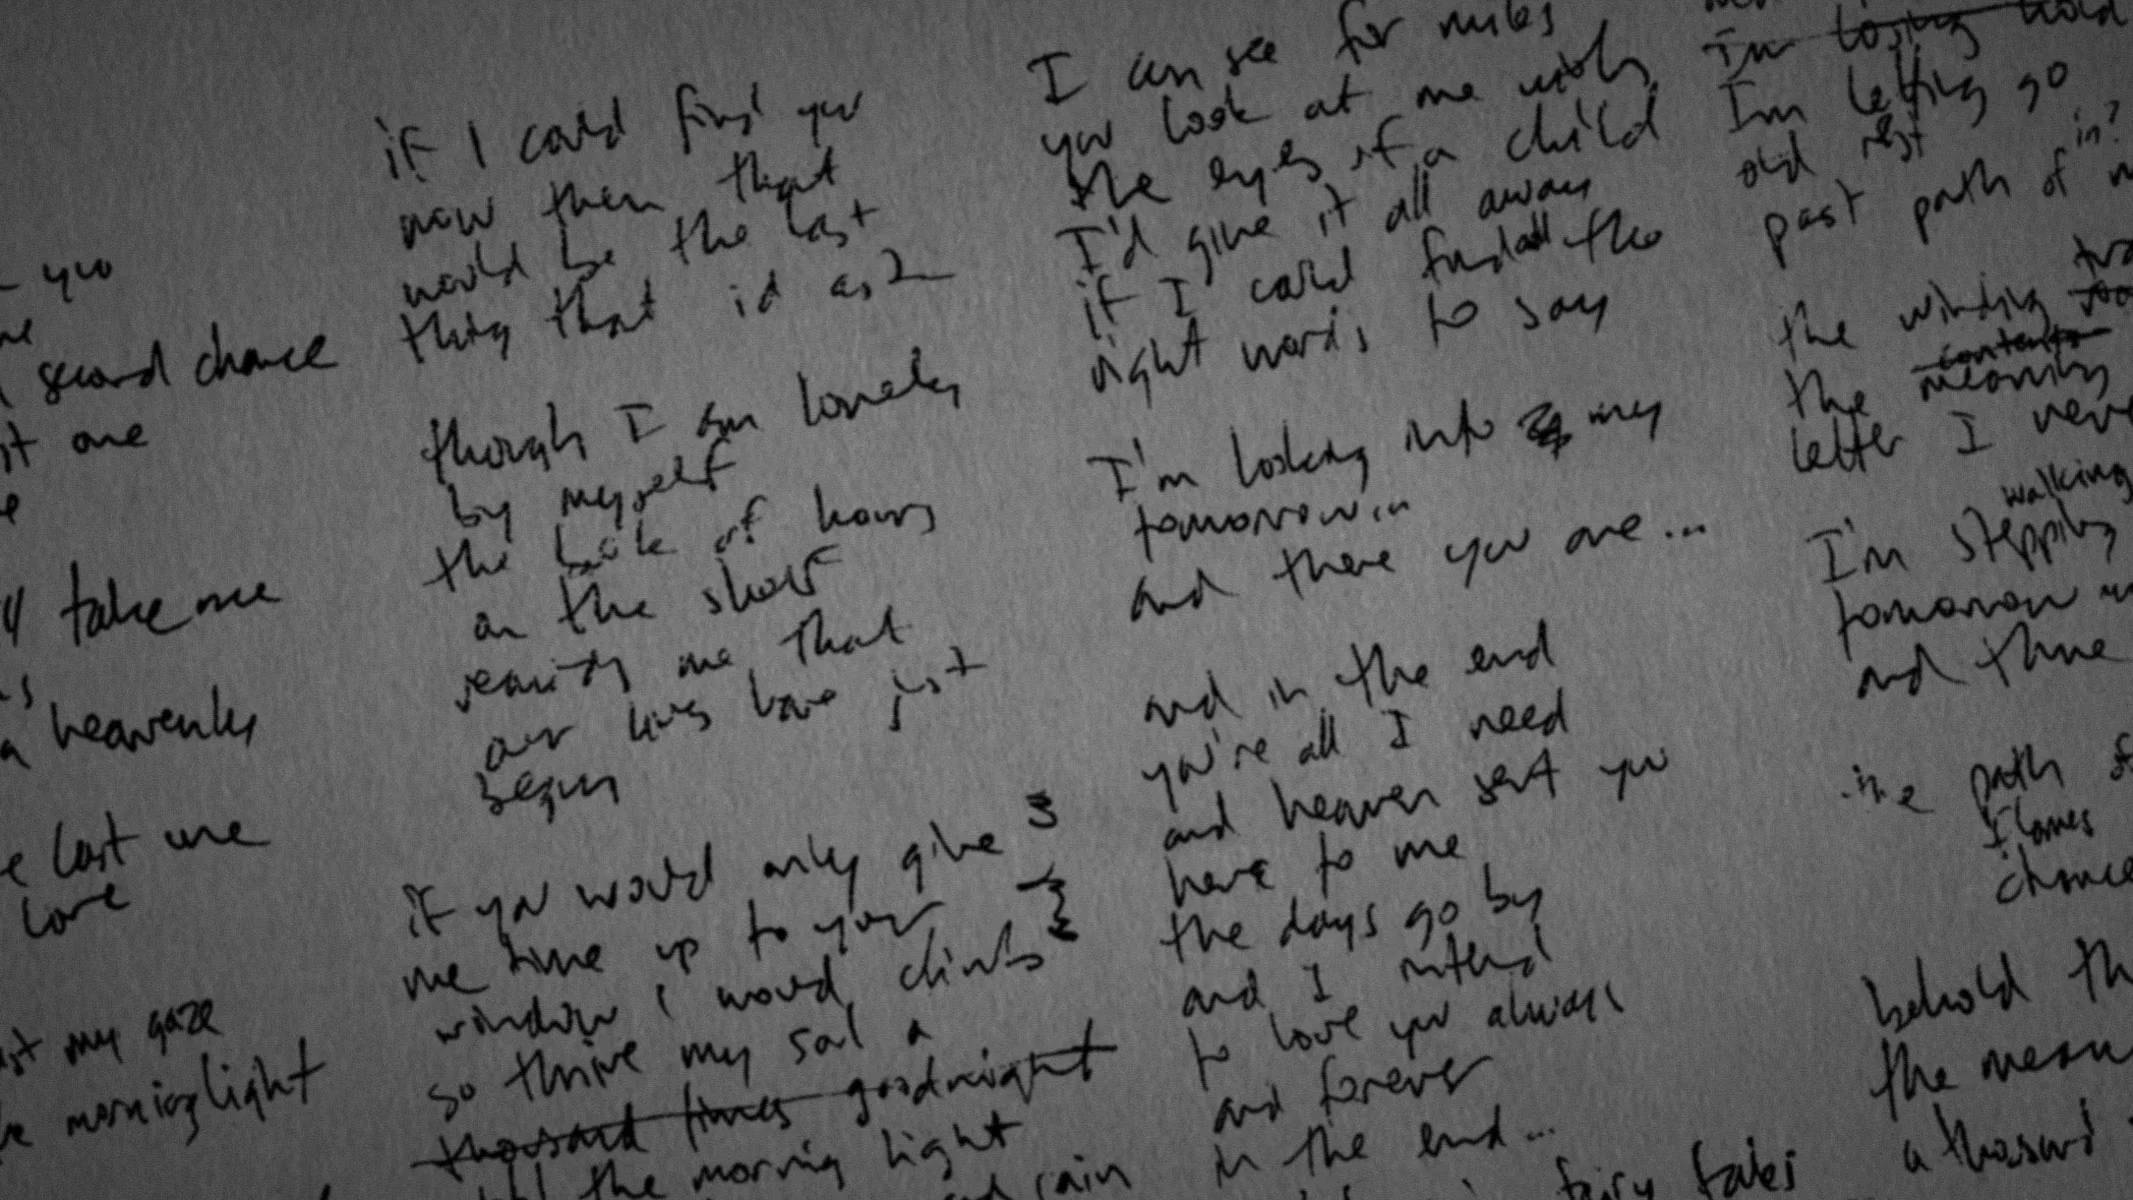 yw
second chance
one
take me
heavenly
last one
love
my gaze
morninglight
if I could find yw
now then that
would be the last
thing that id ask
though I am lonely
by myself
the book of hours
on the shelf
reminds me that
our lives have just
begun
if yw would only give
me time up to your
window i would climb
so thrive my soul a
thousand times goodnight
the morning light
rain
I can see for miles
yw look at me with
the eyes of a child
I'd give it all away
if I could find all the
right words to say
I'm looking into my
tomorrow...
and there yw are...
and in the end
yw're all I need
and heaven sent yw
here to me
the days go by
and I intend
to love yw always
and forever
in the end...
fairy tales
I'm losing hold
I'm letting go
old
past path of in?
the winding
contents
the meaning
letter I
walking
I'm stepping
tomorrow
and
the path
flames
behold
the
a thousand